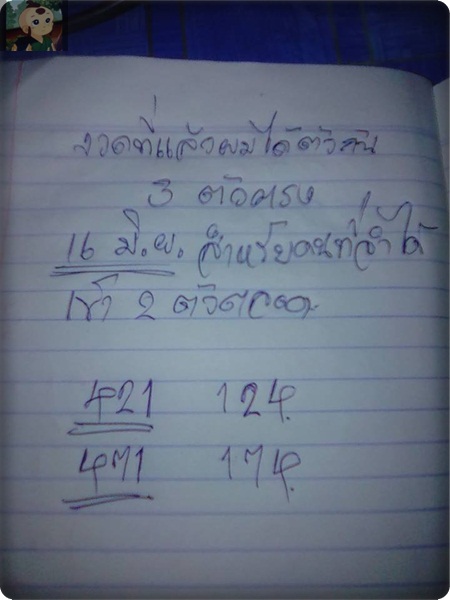 งวดที่แล้วผมได้ตัวลับ
3 ตัวตรง
16 มิ.ย. สำหรับคนที่จำได้
เข้า 2 ตัวตลอด
421 124
471 174